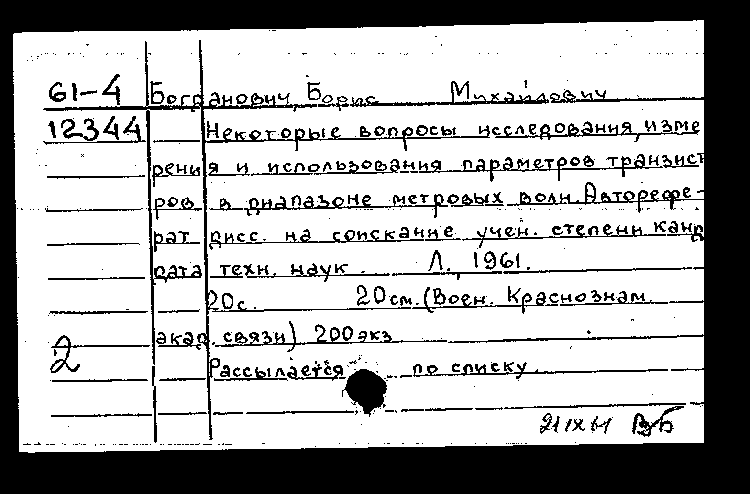 61-4 Богданович, Борис Михайлович
12344 Некоторые вопросы исследования, изме
рения и использования параметров транзист
ров в диапазоне метровых волн. Авторефе-
рат дисс. на соискание учен. степени канд
дата техн. наук. Л., 1961.
20с. 20см. (Воен. Краснознам.
акад. связи) 200 экз
2 Рассылается по списку.
21 IX 61